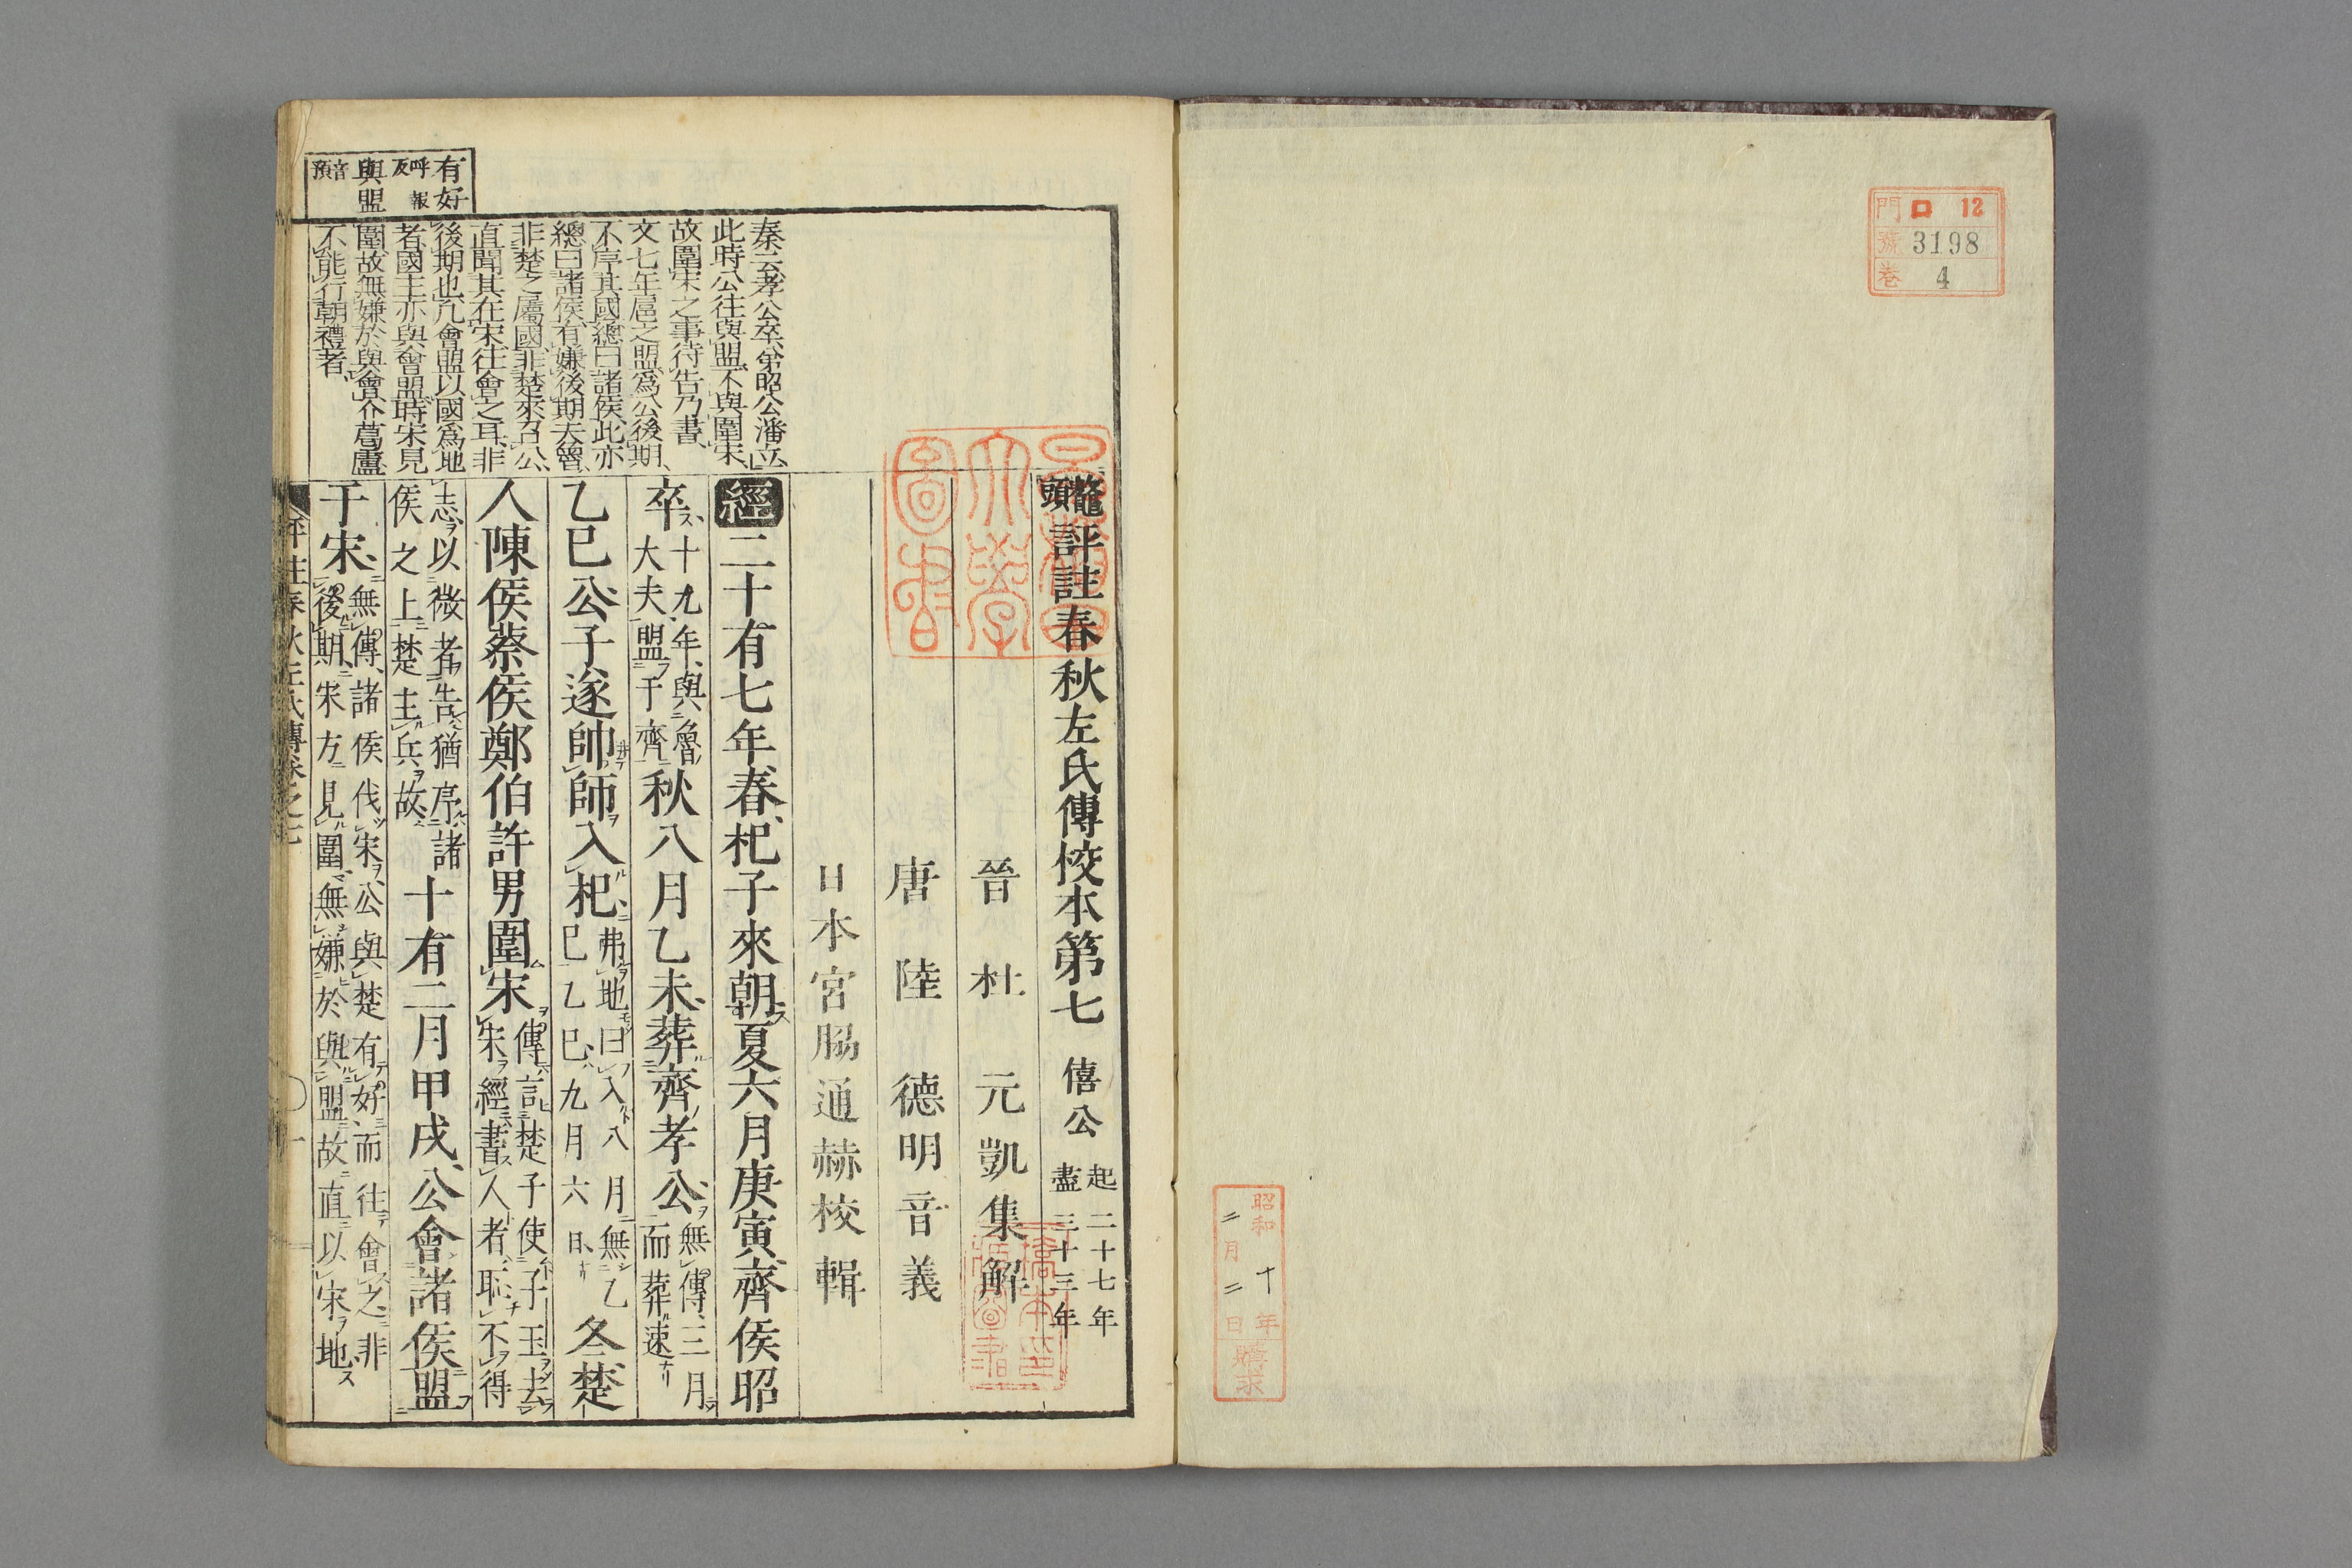 門 ロ 12
號 3198
卷 4
昭和十年
二月二日
購求
鼇頭評註春秋左氏傳挍本第七 僖公 起二十七年盡三十三年
晉 杜 元凱集解
唐 陸 德明音義
日本宮脇通赫校輯
經二十有七年春、杞子來朝夏六月庚寅、齊侯昭
卒、十九年、與魯大夫、盟于齊秋八月乙未、葬齊孝公、無傳、三月而葬速
乙巳公子遂帥師入杞、弗地曰入八月無乙巳乙巳、九月六日、冬、楚
人陳侯蔡侯鄭伯許男圍宋傳言楚子使子玉去宋經書人者、恥不得
志、以微者告猶序諸侯之上楚主兵故、十有二月甲戌、公會諸侯盟
于宋、無傳、諸侯伐宋公與楚有好而往會之非後期、宋方見圍、無嫌於與盟故直以宋地
秦云孝公卒、弟昭公潘立、
此時公往與盟、不與圍宋、
故圍宋之事待告乃書、
文七年扈之盟、爲公後期、
不序其國總曰諸侯、此亦
總曰諸侯、有嫌後期夫魯、
非楚之屬國、非楚來召公、
直聞其在宋往會之耳、非
後期也、凡會盟以國爲地
者、國主亦與會盟、時宋見
圍、故無嫌於與會、介葛盧
不能行朝禮者、
有好 呼報反
與盟 音預
評註春秋左氏傳卷之七
一